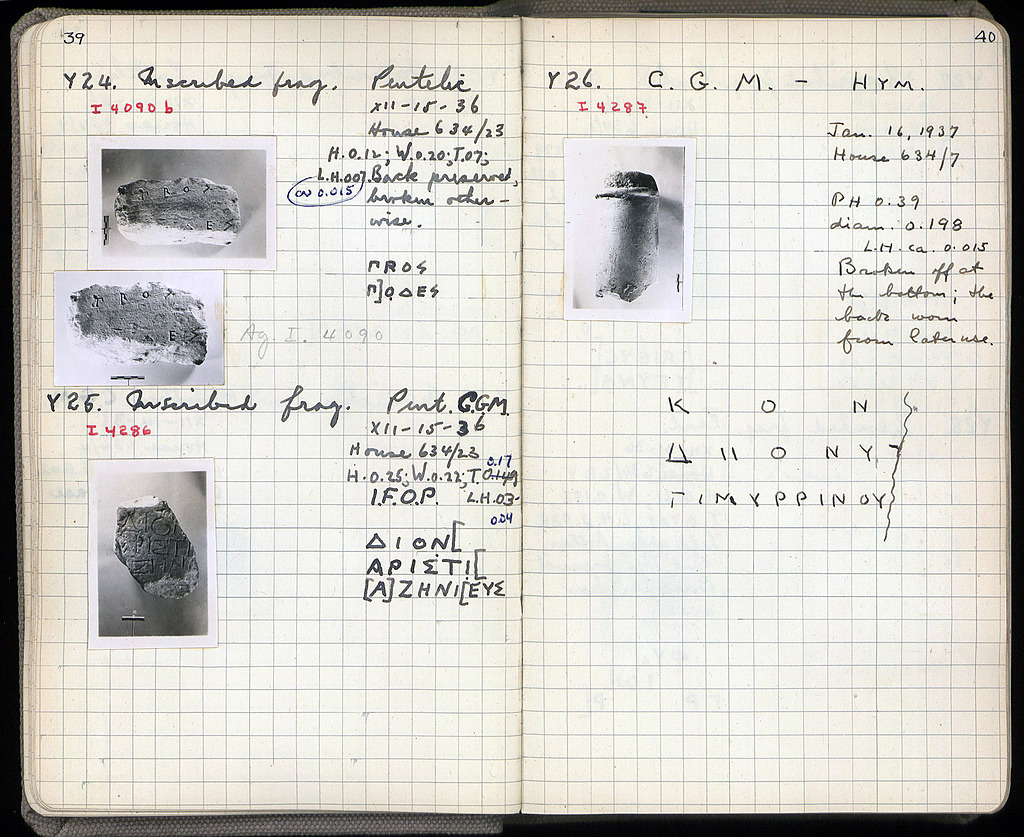 39
Y24. Inscribed frag. Pentelic
I 4090 b
XII-15-36
House 634/23
H.0.12; W.0.20; T.07;
L.H.007 Back preserved,
ca 0.015
broken other-
wise.
ΠROS
Π]ODES
Ag. I. 4090
Y25. Inscribed frag. Pent. C.G.M.
I 4286
XII-15-36
House 634/23
0.17
H.0.25; W.0.22; T.0.149
I.F.O.P. L.H.03-
0.04
ΔΙΟΝ[
ΑΡΙΣΤΙ[
[Α]ΖΗΝΙ[ΕΥΣ
40
Y26. C.G.M. - HYM.
I 4287
Jan. 16, 1937
House 634/7
PH 0.39
diam. 0.198
L.H. ca. 0.015
Broken off at
the bottom; the
back worn
from later use.
Κ Ο Ν
Δ Ι Ι Ο Ν Υ
Γ Ι Μ Υ Ρ Ρ Ι Ν Ο Υ